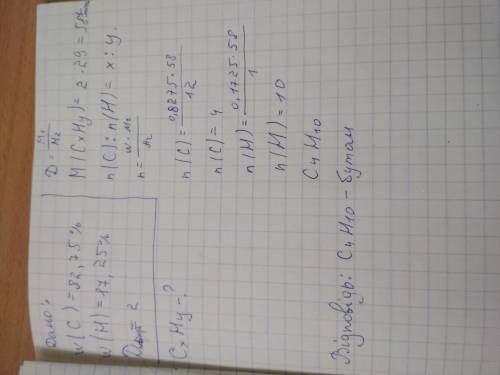 Дано:
W(C) = 82,75%
W(H) = 17,25%
D = 2
CxHy - ?
D = M₁/M₂
M(CxHy) = 2·29 = 58
n(C):n(H) = x:y.
n = W·M₂/M₂
n(C) = 0,8275·58/12
n(C) = 4
n(H) = 0,1725·58/1
n(H) = 10
C4H10
Відповідь: C4H10 - бутан